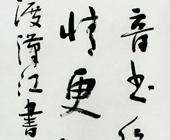 音书
情更
渡漢江書